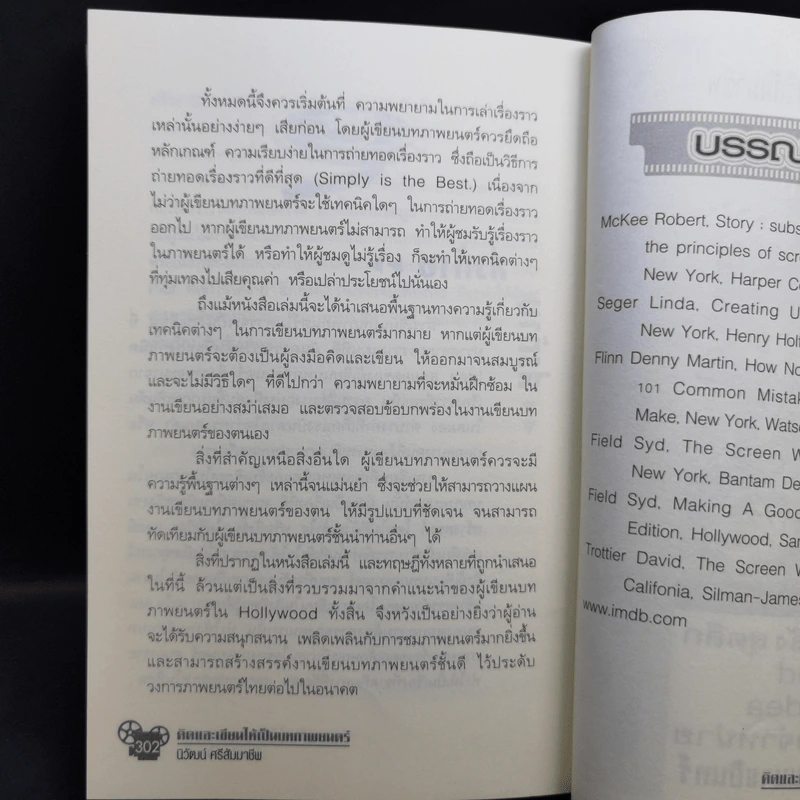 ทั้งหมดนี้จึงควรเริ่มต้นที่ ความพยายามในการเล่าเรื่องราว
เหล่านั้นอย่างง่ายๆ เสียก่อน โดยผู้เขียนบทภาพยนตร์ควรยึดถือ
หลักเกณฑ์ ความเรียบง่ายในการถ่ายทอดเรื่องราว ซึ่งถือเป็นวิธีการ
ถ่ายทอดเรื่องราวที่ดีที่สุด (Simply is the Best.) เนื่องจาก
ไม่ว่าผู้เขียนบทภาพยนตร์จะใช้เทคนิคใดๆ ในการถ่ายทอดเรื่องราว
ออกไป หากผู้เขียนบทภาพยนตร์ไม่สามารถ ทำให้ผู้ชมรับรู้เรื่องราว
ในภาพยนตร์ได้ หรือทำให้ผู้ชมดูไม่รู้เรื่อง ก็จะทำให้เทคนิคต่างๆ
ที่ทุ่มเทลงไปเสียคุณค่า หรือเปล่าประโยชน์ไปนั่นเอง
ถึงแม้หนังสือเล่มนี้จะได้นำเสนอพื้นฐานทางความรู้เกี่ยวกับ
เทคนิคต่างๆ ในการเขียนบทภาพยนตร์มากมาย หากแต่ผู้เขียนบท
ภาพยนตร์จะต้องเป็นผู้ลงมือคิดและเขียน ให้ออกมาจนสมบูรณ์
และจะไม่มีวิธีใดๆ ที่ดีไปกว่า ความพยายามที่จะหมั่นฝึกซ้อม ใน
งานเขียนอย่างสม่ำเสมอ และตรวจสอบข้อบกพร่องในงานเขียนบท
ภาพยนตร์ของตนเอง
สิ่งที่สำคัญเหนือสิ่งอื่นใด ผู้เขียนบทภาพยนตร์ควรจะมี
ความรู้พื้นฐานต่างๆ เหล่านี้จนแม่นยำ ซึ่งจะช่วยให้สามารถวางแผน
งานเขียนบทภาพยนตร์ของตน ให้มีรูปแบบที่ชัดเจน จนสามารถ
ทัดเทียมกับผู้เขียนบทภาพยนตร์ชั้นนำท่านอื่นๆ ได้
สิ่งที่ปรากฏในหนังสือเล่มนี้ และทฤษฎีทั้งหลายที่ถูกนำเสนอ
ในที่นี้ ล้วนแต่เป็นสิ่งที่รวบรวมมาจากคำแนะนำของผู้เขียนบท
ภาพยนตร์ใน Hollywood ทั้งสิ้น จึงหวังเป็นอย่างยิ่งว่าผู้อ่าน
จะได้รับความสนุกสนาน เพลิดเพลินกับการชมภาพยนตร์มากยิ่งขึ้น
และสามารถสร้างสรรค์งานเขียนบทภาพยนตร์ชั้นดี ไว้ประดับ
วงการภาพยนตร์ไทยต่อไปในอนาคต
302
คิดและเขียนให้เป็นบทภาพยนตร์
นิวัฒน์ ศรีสัมมาชีพ
บรรณ
McKee Robert, Story : subs
the principles of scr
New York, Harper C
Seger Linda, Creating U
New York, Henry Holt
Flinn Denny Martin, How No
101 Common Mistak
Make, New York, Wats
Field Syd, The Screen W
New York, Bantam De
Field Syd, Making A Good
Edition, Hollywood, Sam
Trottier David, The Screen W
Califonia, Silman-James
www.imdb.com
คิดและ